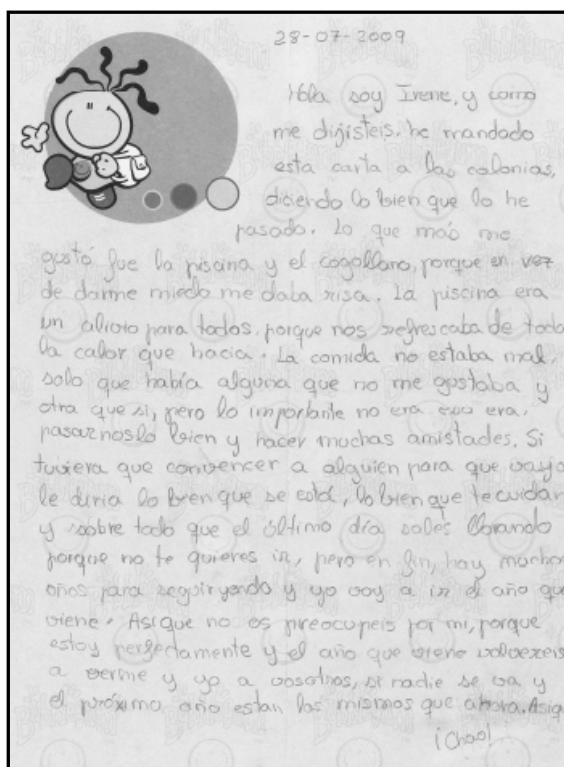 28-07-2009
Hola soy Irene, y como
me dijisteis, he mandado
esta carta a las colonias,
diciendo lo bien que lo he
pasado. Lo que más me
gustó fue la piscina y el cogollano, porque en vez
de darme miedo me daba risa. La piscina era
un alivio para todos, porque nos refrescaba de toda
la calor que hacia. La comida no estaba mal,
solo que había alguna que no me gustaba y
otra que si, pero lo importante no era eso era,
pasarnoslo bien y hacer muchas amistades. Si
tuviera que convencer a alguien para que vaya
le diria lo bien que se está, lo bien que te cuidan
y sobre todo que el último día sales llorando
porque no te quieres ir, pero en fin, hay muchos
años para seguir yendo y yo voy a ir el año que
viene. Asi que no os preocupeis por mi, porque
estoy perfectamente y el año que viene volvereis
a verme y yo a vosotros, si nadie se va y
el próximo año estan los mismos que ahora. Asiq
¡Chao!